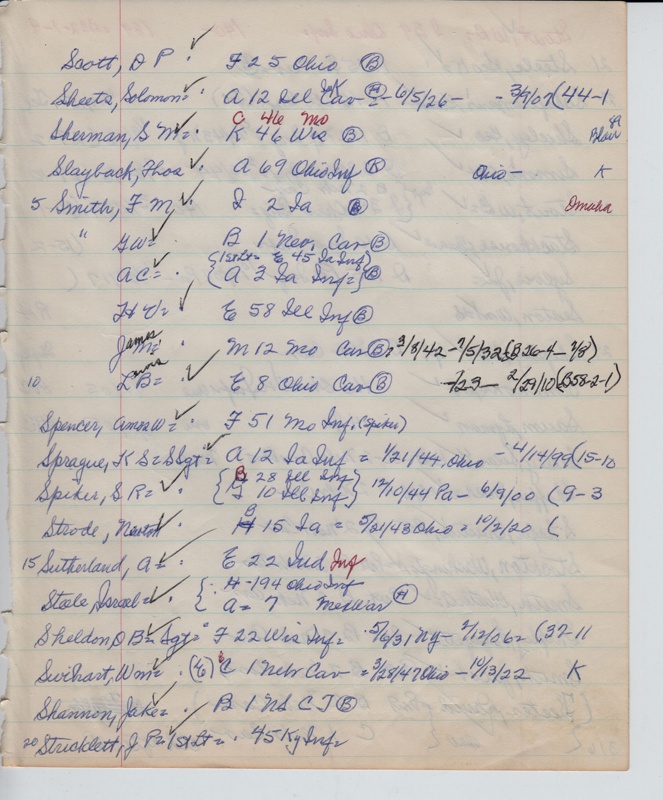 Scott, D P. F 25 Ohio (B)
Sheets, Solomon= A 12 Ill Cav (H) = 6/5/26 - - 3/7/07 (44-1
C 46 Mo
Sherman, S M=. K 46 Wis (B) Blair
Slayback, Thos A 69 Ohio Inf (K) Ohio - K
5 Smith, F M, I 2 Ia (B) Omaha
" G W= B 1 Nev. Cav (B)
{1st Lt= E 45 Ia Inf}
A C= . {A 3 Ia Inf=} (B)
H V= E 58 Ill Inf (B)
James
M= M 12 Mo Cav (B) 3/8/42 - 7/5/32 (B26-4 - 7/8)
10 L B= . E 8 Ohio Cav (B) -/23 - 2/29/10 (B58-2-1)
Spencer, Amos W= F 51 Mo Inf. (Spiker)
Sprague, K S= S Sgt= A 12 Ia Inf = 1/21/44, Ohio - 4/14/99 (15-10
{B 28 Ill Inf}
Spiker, S R= {F 10 Ill Inf} 12/10/44 Pa - 6/9/00 (9-3
Strode, Newton . G 15 Ia = 5/21/43 Ohio = 10/2/20 (
15 Sutherland, A= . E 22 Ind Inf
{ H -194 Ohio Inf
Steele, Israel= . { A = 7 Mex War (H)
Sheldon D B= Sgt= F 22 Wis Inf= 5/6/31 Ny - 2/12/06= (37-11
Swihart, Wm= . (E) C 1 Nebr Cav = 3/28/47 Ohio - 10/13/22 K
Shannon, Jake= . B 1 U S C I (B)
20 Stricklett, J P= 1st Lt= . 45 Ky Inf=